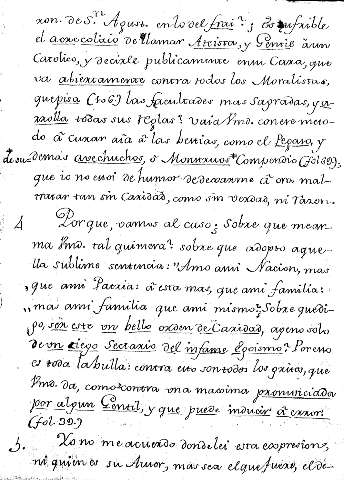 xon. de S.n Agust. en lo del frai?; es insufrible
el de llamar Ateista, y Gentil â un
Catolico, y decirle publicamente en su Cara, que
va abiertamente contra todos los Moralistas,
que pisa (to 6.) las facultades mas Sagradas, y
todas sus reglas? Vaia Vmd. con ese meto-
do â curar aia â las bestias, como el Pegaso, y
demas avechuchos, ô Monstruos Compendio (fol 39.)
que io no estoi de humor de dexarme â ora mal-
tratar tan sin Caridad, como sin verdad, ni razon.
4. Porque, vamos al caso; Sobre que me ar-
ma Vmd. tal quimera? sobre que adopto aque-
lla sublime sentencia: "Amo a mi Nacion, mas
„ que a mi Patria: â esta mas, que a mi familia:
„ mas a mi familia que a mi mismo? Sobre que di-
go, ser este un bello orden de Caridad, ageno solo
de un ciego Sectario del infame Egoismo? Pero no
es toda la bulla: contra esto son todos los gritos, que
Vmd. da, como contra una maxima pronunciada
por algun Gentil, y que puede inducir â error.
(fol 39.)
5. Yo no me acuerdo donde lei esta expresion,
ni quien es su Autor, mas sea el que fuere, el de-